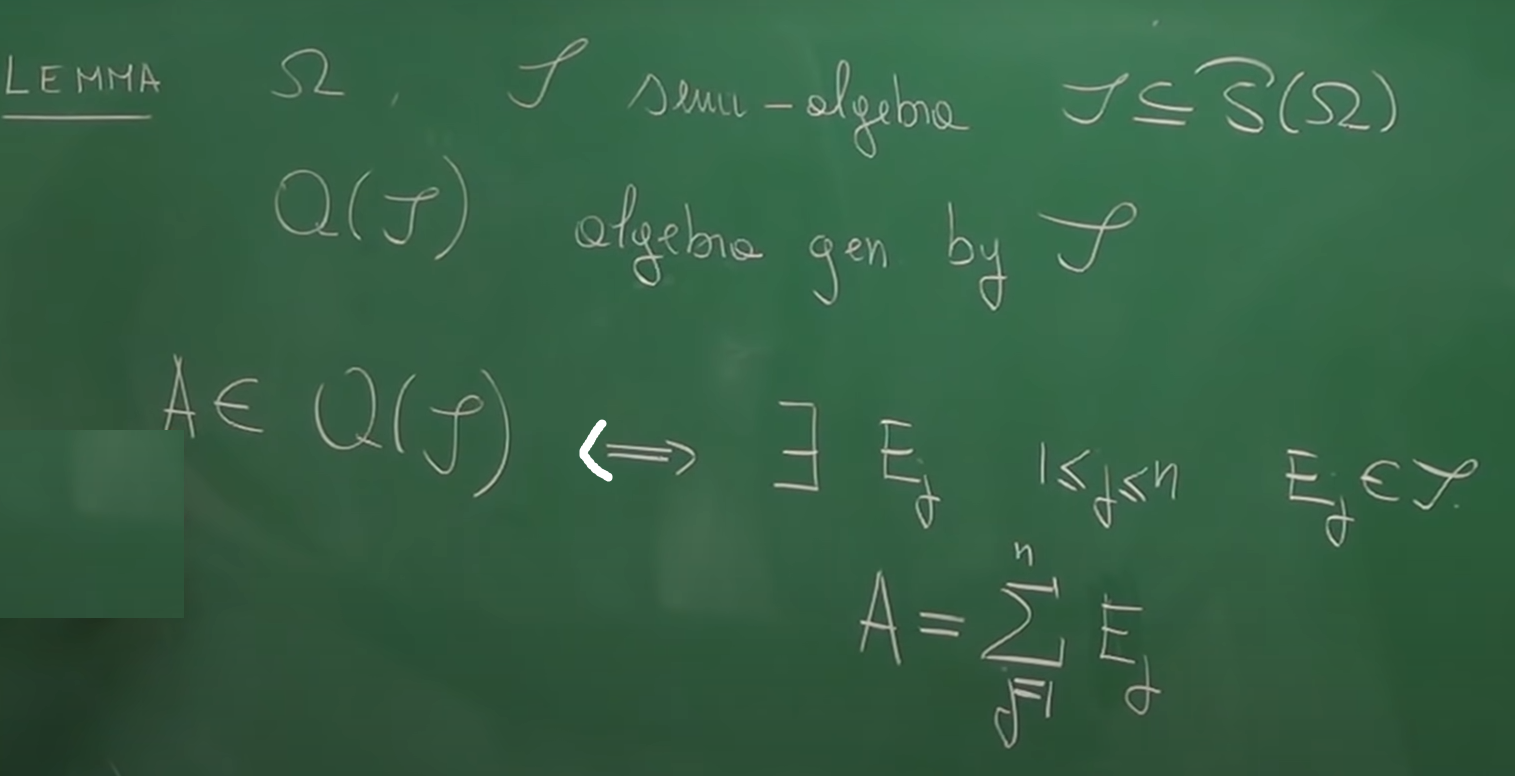 LEMMA Ω, 𝒮 semi-algebra 𝒮 ⊆ P(Ω)
Q(𝒮) algebra gen by 𝒮
A ∈ Q(𝒮) ⟺ ∃ E_j 1≤j≤n E_j ∈ 𝒮.
A = ∑_{j=1}^{n} E_j